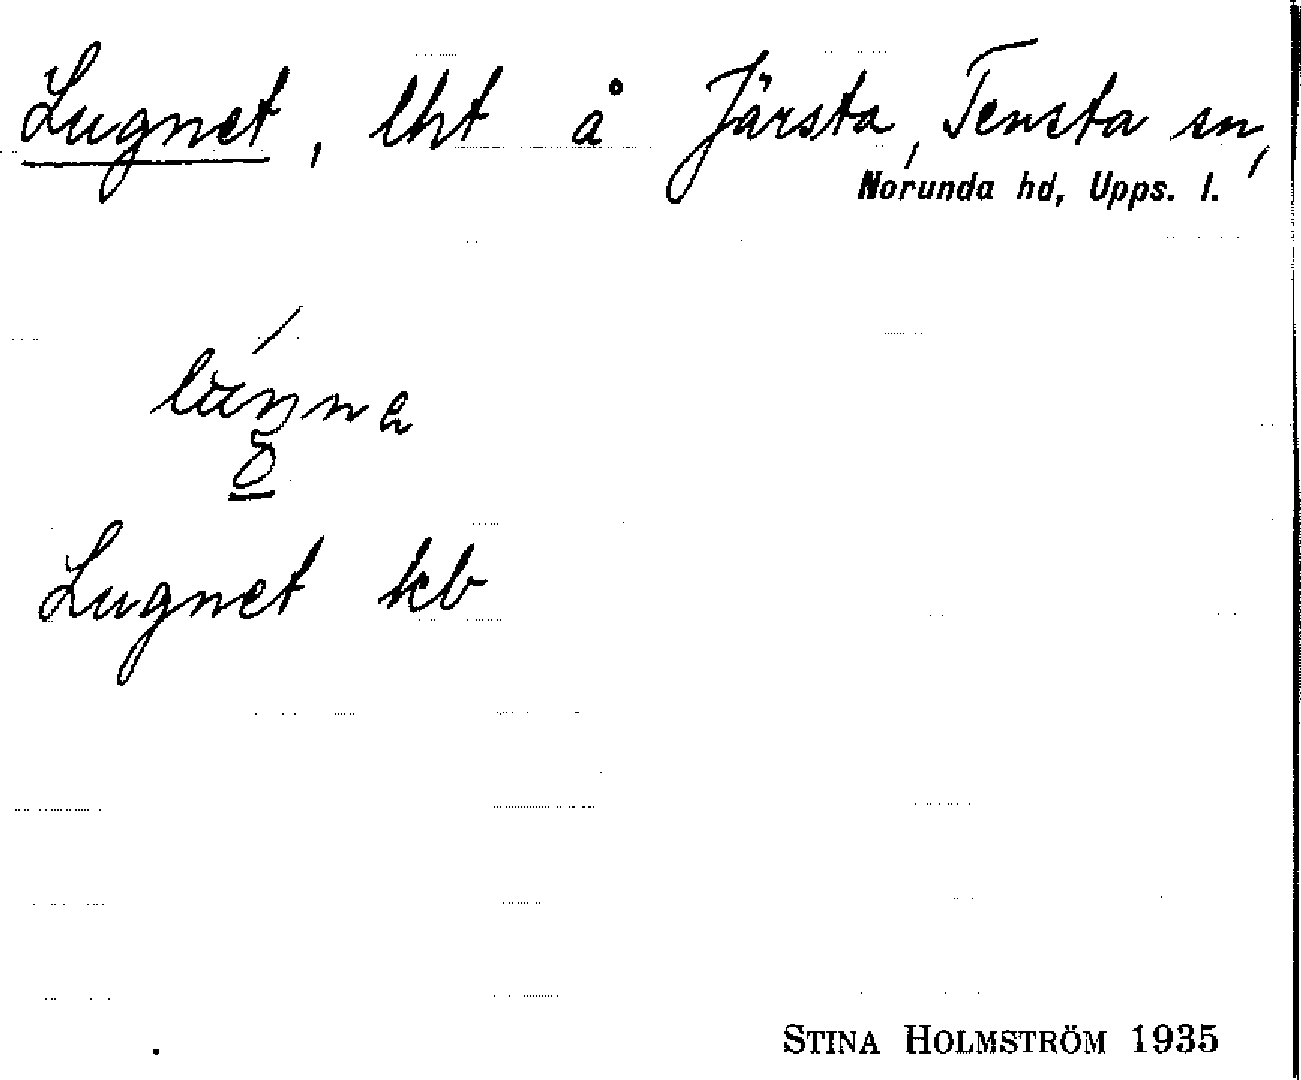 Lugnet, lht å Järsta, Tensta sn,
Norunda hd, Upps. l.
Lugnet kb
STINA HOLMSTRÖM 1935